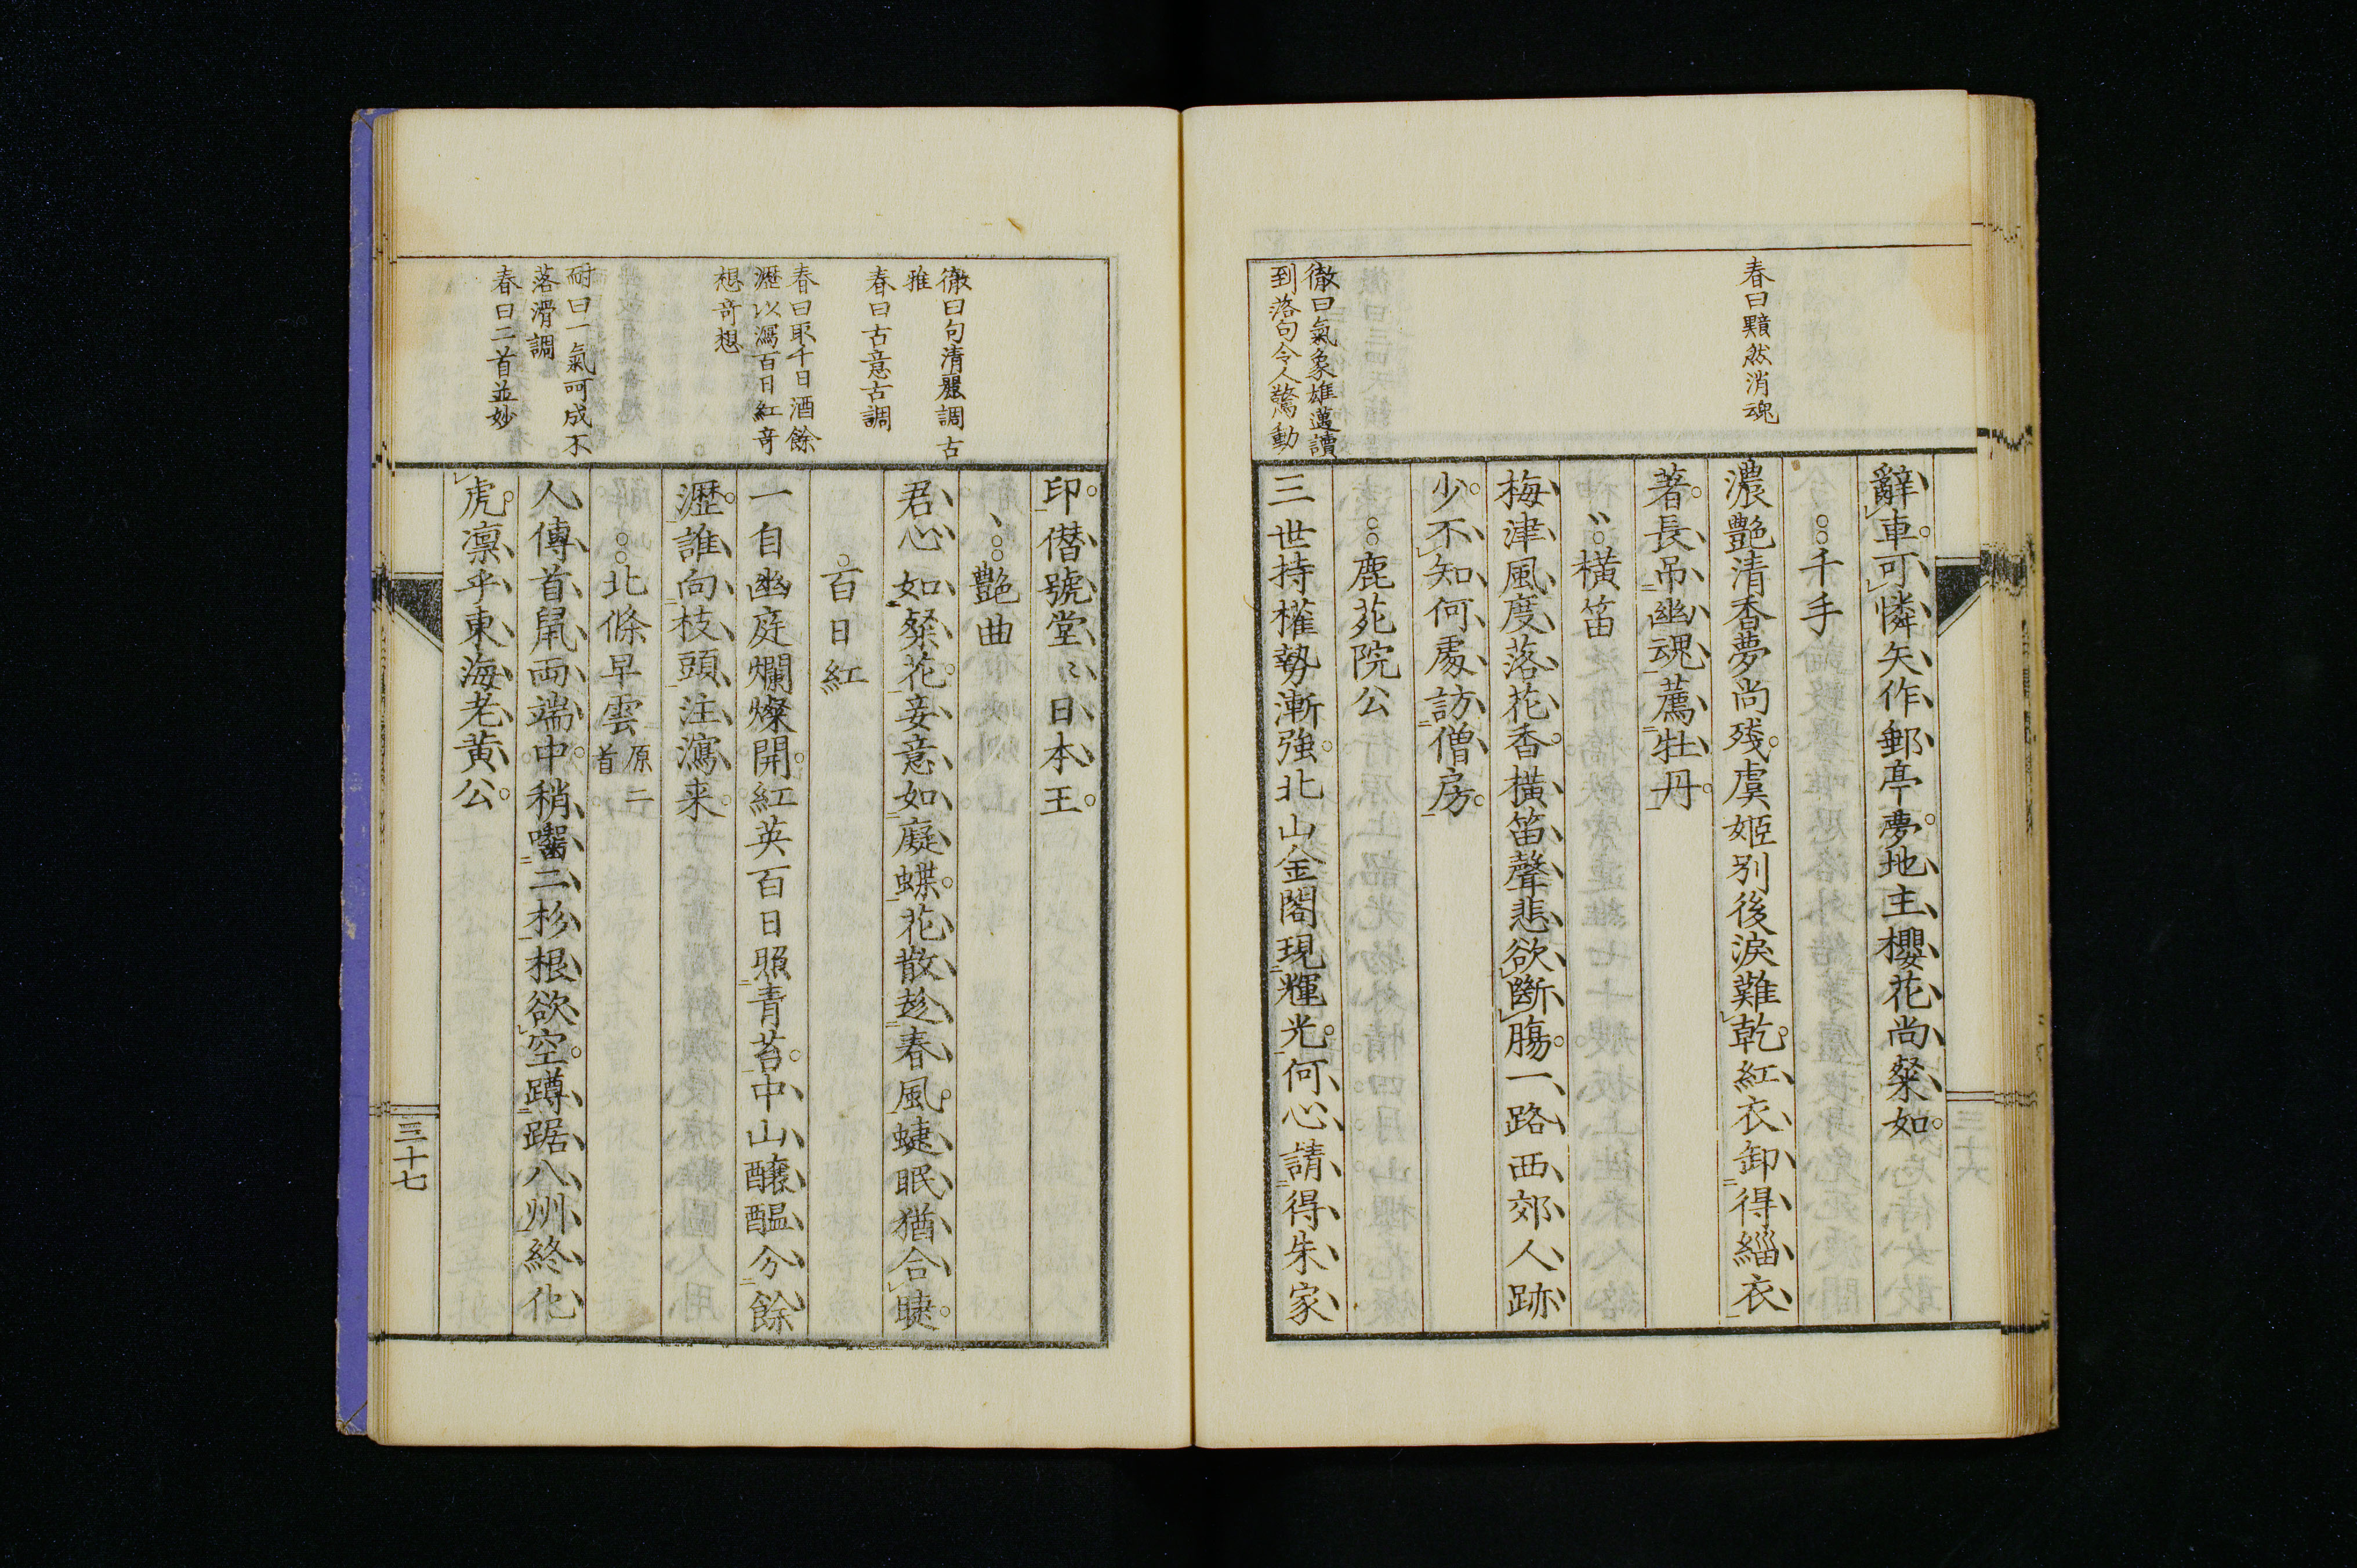 春曰黯然消魂
徹曰氣象雄邁讀
到落句令人驚動
辭車可憐矢作郵亭夢地主櫻花尚粲如
千手
濃艷清香夢尚殘虞姬別後淚難乾紅衣卸得緇衣
著長吊幽魂薦牡丹
橫笛
梅津風度落花香橫笛聲悲欲斷膓一路西郊人跡
少不知何處訪僧房
鹿苑院公
三世持權勢漸強北山金閣現輝光何心請得朱家
徹曰句清麗調古
雅
春曰古意古調
春曰取千日酒餘
瀝以瀉百日紅竒
想竒想
耐曰一氣呵成不
落滑調
春曰二首並妙
印僭號堂〻日本王
艷曲
君心如粲花妾意如癡蝶花散趁春風蜨眠猶合睫
百日紅
一自幽庭爛燦開紅英百日照青苔中山釀醖分餘
瀝誰向枝頭注瀉来
北條早雲 原二首
人傳首鼠兩端中稍囓二杉根欲空蹲踞八州終化
虎凛乎東海老黄公
三十七